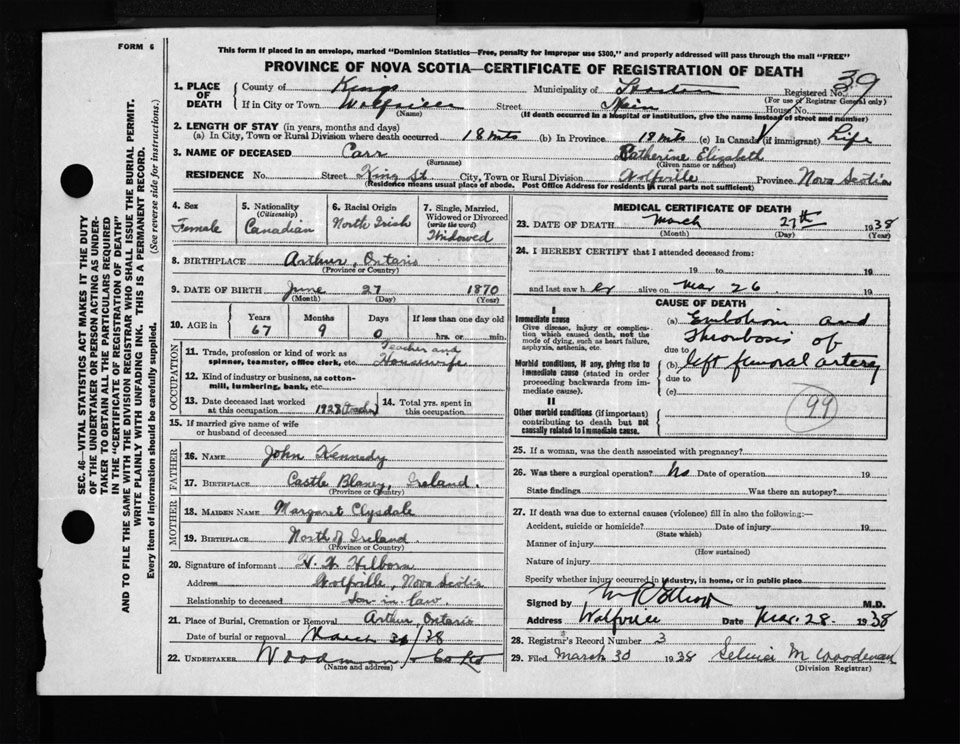 FORM 6
This form if placed in an envelope, marked "Dominion Statistics—Free, penalty for improper use $300," and properly addressed will pass through the mail "FREE"
PROVINCE OF NOVA SCOTIA—CERTIFICATE OF REGISTRATION OF DEATH
SEC. 46—VITAL STATISTICS ACT MAKES IT THE DUTY
OF THE UNDERTAKER OR PERSON ACTING AS UNDER-
TAKER TO OBTAIN ALL THE PARTICULARS REQUIRED
IN THE "CERTIFICATE OF REGISTRATION OF DEATH"
AND TO FILE THE SAME WITH THE DIVISION REGISTRAR WHO SHALL ISSUE THE BURIAL PERMIT.
WRITE PLAINLY WITH UNFADING INK. THIS IS A PERMANENT RECORD.
Every item of information should be carefully supplied. (See reverse side for instructions.)
1. PLACE OF DEATH County of Kings Municipality of Registered No. 39
(For use of Registrar General only)
If in City or Town Wolfville Street Main House No.
(Name) (If death occurred in a hospital or institution, give the name instead of street and number)
2. LENGTH OF STAY (in years, months and days)
(a) In City, Town or Rural Division where death occurred 18 mts (b) In Province 18 mts (c) In Canada (if immigrant) Life
3. NAME OF DECEASED Carr Catherine Elizabeth
(Surname) (Given name or names)
RESIDENCE No. Street King St. City, Town or Rural Division Wolfville Province Nova Scotia
(Residence means usual place of abode. Post Office Address for residents in rural parts not sufficient)
4. Sex Female
5. Nationality (Citizenship) Canadian
6. Racial Origin North Irish
7. Single, Married, Widowed or Divorced (write the word) Widowed
8. BIRTHPLACE Arthur, Ontario
(Province or Country)
9. DATE OF BIRTH June 27 1870
(Month) (Day) (Year)
10. AGE in Years 67 Months 9 Days 0 If less than one day old hrs. or min.
OCCUPATION
11. Trade, profession or kind of work as spinner, teamster, office clerk, etc. Teacher and Housewife
12. Kind of industry or business, as cotton-mill, lumbering, bank, etc.
13. Date deceased last worked at this occupation 1928
14. Total yrs. spent in this occupation.
15. If married give name of wife or husband of deceased
FATHER
16. NAME John Kennedy
17. BIRTHPLACE Castle Blaney, Ireland.
(Province or Country)
MOTHER
18. MAIDEN NAME Margaret Clysdale
19. BIRTHPLACE North of Ireland
(Province or Country)
20. Signature of informant Hilborn
Address Wolfville, Nova Scotia
Relationship to deceased Son-in-law.
21. Place of Burial, Cremation or Removal Arthur, Ontario
Date of burial or removal March /38
22. UNDERTAKER Woodman
(Name and address)
MEDICAL CERTIFICATE OF DEATH
23. DATE OF DEATH March 27th 1938
(Month) (Day) (Year)
24. I HEREBY CERTIFY that I attended deceased from:
19 to 19
and last saw her alive on Mar 26 19
CAUSE OF DEATH
I
Immediate cause
Give disease, injury or complication which caused death, not the mode of dying, such as heart failure, asphyxia, asthenia, etc.
(a) Embolism and Thrombosis of
due to
Morbid conditions, if any, giving rise to immediate cause (stated in order proceeding backwards from immediate cause).
(b) left femoral artery
due to
(c)
II
Other morbid conditions (if important) contributing to death but not causally related to immediate cause.
99
25. If a woman, was the death associated with pregnancy?
26. Was there a surgical operation? No Date of operation 19
State findings Was there an autopsy?
27. If death was due to external causes (violence) fill in also the following:—
Accident, suicide or homicide? Date of injury 19
(State which)
Manner of injury
(How sustained)
Nature of injury
Specify whether injury occurred in industry, in home, or in public place
Signed by M.D.
Address Wolfville Date Mar. 28. 1938
28. Registrar's Record Number 3
29. Filed March 30 1938 M Woodman
(Division Registrar)